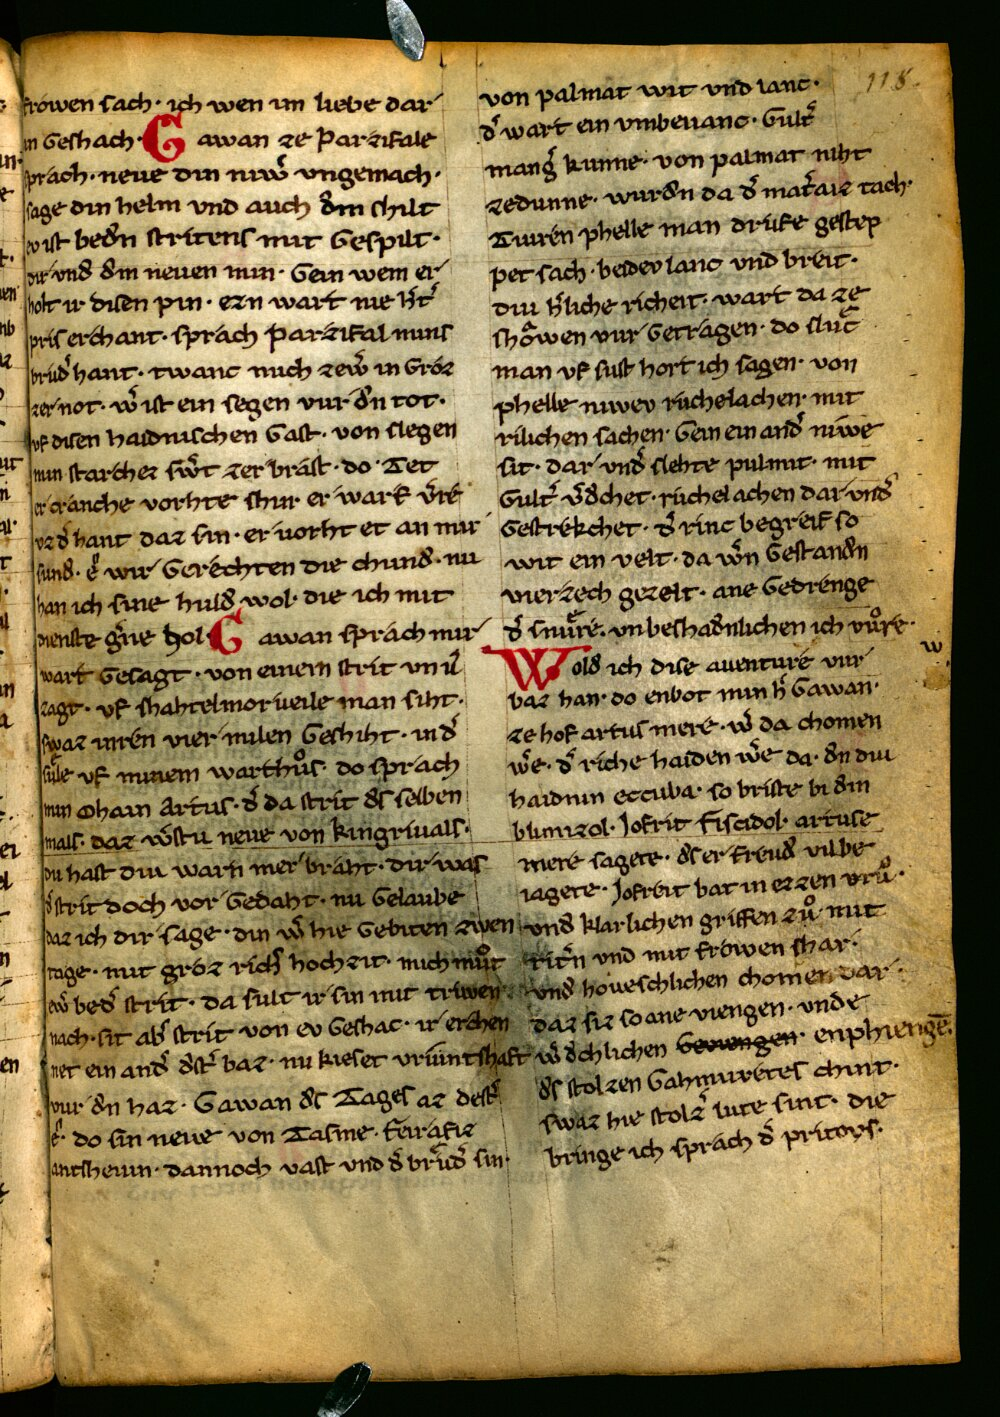 118.
frowen sach· ich wen im liebe dar
an Geshach· Gawan ze Parzifale
sprach· neve din niwͤ ungemach·
sage din helm und auch din schilt
ev ist bedn stritens mit Gespilt·
dir und din neven min· Gein wem er
holt ir disen pin· ezn wart nie hͤtͤ
pris erchant· sprach Parzifal mins
brud hant· twanc mich zewͤ in Groz
zer not· wͤ ist ein segen vur dn tot·
uf disen haidnischen Gast· von slegen
min starchez swͤt zer brast· do Tet
er cranche vorhte shin· er warf vͤre
vz dͤ hant daz sin· er vorht et an mir
sund· eͤ wir Gerechten die chund· nu
han ich sine huld wol· die ich mit
dienste gͤne hol· Gawan sprach mir
wart Gesagt· von einem strit un
zagt· uf shahtelmorveile man siht·
swaz inren vier milen Geshiht· in dͤ
sule uf minem warthuͦs· do sprach
min ohain Artus· dͤ da strit ds selben
mals· daz wͤstu neve von kingrivals·
du hast diu warn mer braht· dir was
dͤ strit doch vor Gedaht· nu Gelaube
daz ich dir sage· din wͤ hie Gebiten zwen
tage· mit groz richͤ hochzit· mich muͦt
ewͤ bedͤ strit· da sult ir sin mit triwen
nach· sit abͤ strit von ev Geshac· ir erchen
net ein andͤ dstͤ baz· nu kieset vriuntshaft
vur dn haz· Gawan ds Tages az destͤ
eͤ· do sin neve von Tasme· feirafiz
antshevin· dannoch vast und dͤ brudͤ sin·
von palmat wit und lanc·
dͤ wart ein umbevanc· Gultͤ
mangͤ kunne· von palmat niht
zedunne· wurdn da dͤ matͤaiz tach·
Tiuren phelle man drufe gestep
pet sach· beidev lanc und breit·
diu hͤliche richeit· wart da ze
shoͮwen vur Getragen· do sluc
man uf sust hort ich sagen· von
phelle niwev ruchelachen· mit
rilichen sachen· Gein ein andͤ niwe
sit· dar undͤ slehte pulmit· mit
Gultͤ vͤdchet· ruchelachen dar undͤ
Gestrekchet· dͤ rinc begreif so
wit ein velt· da wͤn Gestandn
vierzech gezelt· ane Gedrenge
dͤ snuͤre· unbeshadnlichen ich vuͦre·
Wold ich dise aventure vur
baz han· do enbot min hͤ Gawan·
ze hof artus mere· wͤ da chomen
wͤe· dͤ riche haiden wͤe da· dn diu
haidnin eccuba· so briste bi dm
blimzol· Jofrit fiscidol· artuse
mere sagete· ds er freudͤ vil be
iagete· Jofreit bat in ezzen vruͦ·
und klarlichen griffen zuͦ· mit
ritͤn und mit frowen shar·
und hoveschlichen chomen dar·
daz siz so ane viengen· unde
wͤdchlichen Geviengen· enphienge͞·
ds stolzen Gahmuretes chint·
swaz hie stolzͤ lute sint· die
bringe ich sprach dͤ pritoys·
w